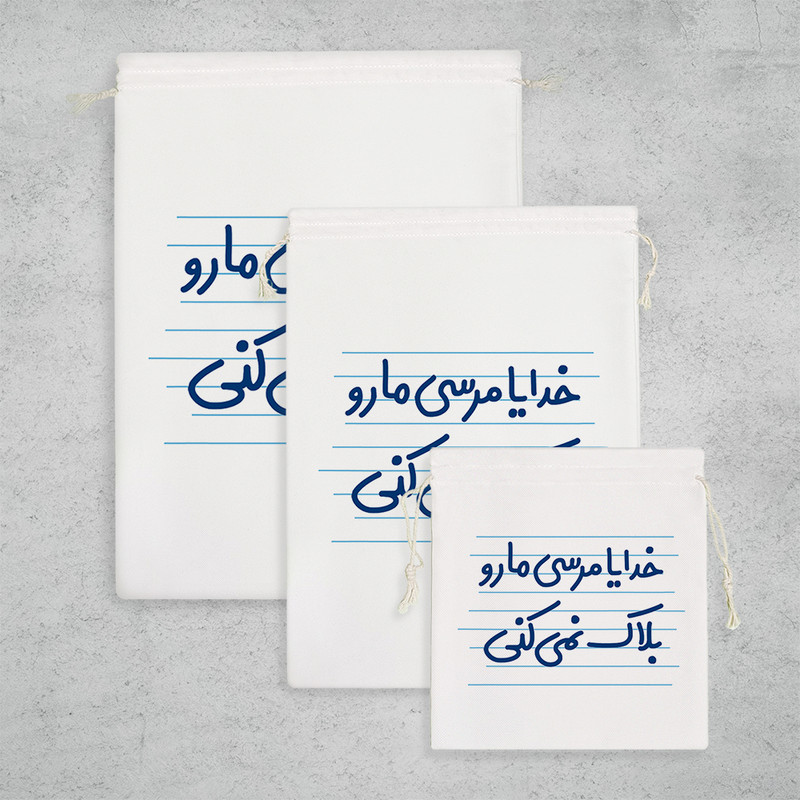 مارو
کنی
خدایا مرسی مارو
کنی
خدایا مرسی مارو
بلاک نمی کنی